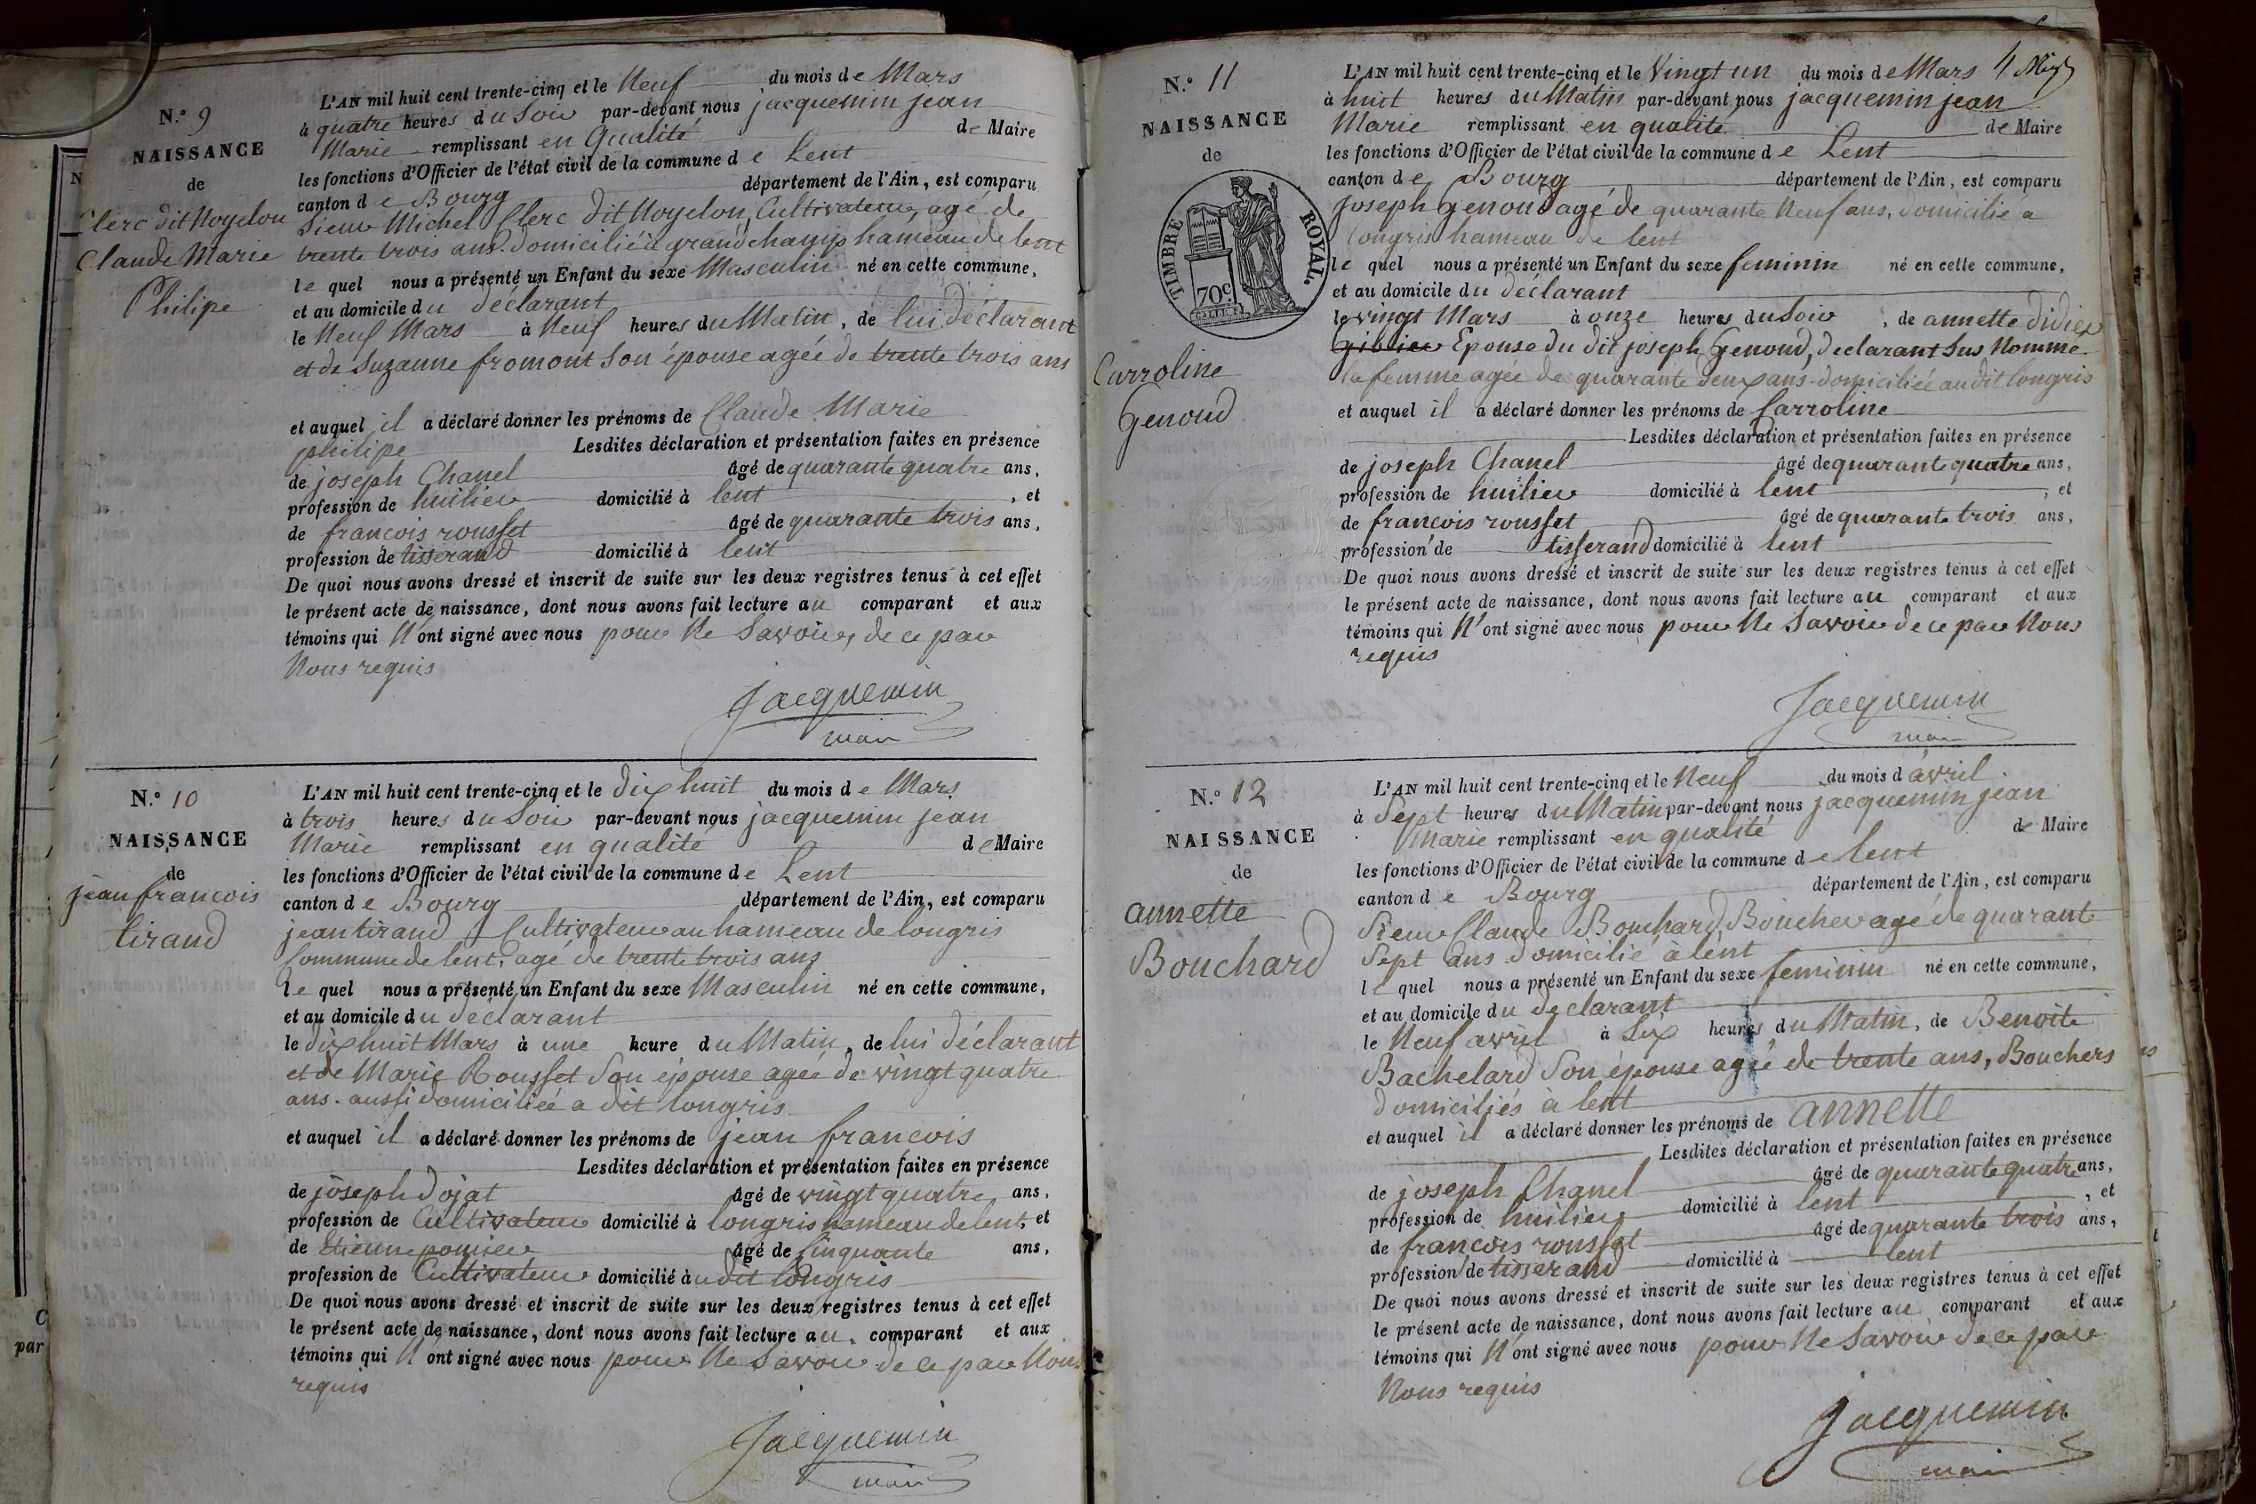 N.° 9
NAISSANCE
de
Clerc dit Noyelon
Claude Marie
Philipe
L'AN mil huit cent trente-cinq et le Neuf du mois de Mars
à quatre heures du Soir par-devant nous jacquemin jean
Marie remplissant en Qualité de Maire
les fonctions d'Officier de l'état civil de la commune de Lent
canton de Bourg département de l'Ain, est comparu
Sieur Michel Clerc dit Noyelon, Cultivateur, agé de
trente trois ans. domicilié à grand champ hameau de lent
le quel nous a présenté un Enfant du sexe Masculin né en cette commune,
et au domicile du déclarant
le Neuf Mars à Neuf heures du Matin, de lui déclarant
et de Suzanne fromont Son épouse agée de trente trois ans
et auquel il a déclaré donner les prénoms de Claude Marie
philipe Lesdites déclaration et présentation faites en présence
de joseph Chanel âgé de quarante quatre ans,
profession de huilier domicilié à lent, et
de francois rousset âgé de quarante trois ans,
profession de tisserand domicilié à lent
De quoi nous avons dressé et inscrit de suite sur les deux registres tenus à cet effet
le présent acte de naissance, dont nous avons fait lecture au comparant et aux
témoins qui N'ont signé avec nous pour Ne Savoir, de ce par
Nous requis
Jacquemin
mair
N.° 10
NAISSANCE
de
jean francois
tirand
L'AN mil huit cent trente-cinq et le dix huit du mois de Mars
à trois heures du Soir par-devant nous jacquemin jean
Marie remplissant en qualité de Maire
les fonctions d'Officier de l'état civil de la commune de Lent
canton de Bourg département de l'Ain, est comparu
jean tirand Cultivateur au hameau de longris
Commune de lent, agé de trente trois ans
le quel nous a présenté un Enfant du sexe Masculin né en cette commune,
et au domicile du déclarant
le dix huit Mars à une heure du Matin, de lui déclarant
et de Marie Rousset Son épouse agée de vingt quatre
ans. aussi domiciliée a dit longris
et auquel il a déclaré donner les prénoms de jean francois
Lesdites déclaration et présentation faites en présence
de joseph dojat âgé de vingt quatre ans,
profession de Cultivateur domicilié à longris hameau de lent, et
de Etienne âgé de Cinquante ans,
profession de Cultivateur domicilié à u dit longris
De quoi nous avons dressé et inscrit de suite sur les deux registres tenus à cet effet
le présent acte de naissance, dont nous avons fait lecture au comparant et aux
témoins qui N'ont signé avec nous pour Ne Savoir de ce par Nous
requis
Jacquemin
mair
4 
N.° 11
NAISSANCE
de
TIMBRE ROYAL.
70c.
Carroline
Genoud
L'AN mil huit cent trente-cinq et le Vingt un du mois de Mars
à huit heures du Matin par-devant nous jacquemin jean
Marie remplissant en qualité de Maire
les fonctions d'Officier de l'état civil de la commune de Lent
canton de Bourg département de l'Ain, est comparu
Joseph Genoud agé de quarante Neuf ans, domicilié a
longris hameau de lent
le quel nous a présenté un Enfant du sexe feminin né en cette commune,
et au domicile du déclarant
le vingt Mars à onze heures du Soir, de annette didier
Epouse du dit joseph Genoud, declarant Sus Nommé
la femme agée de quarante deux ans. domiciliée au dit longris
et auquel il a déclaré donner les prénoms de Carroline
Lesdites déclaration et présentation faites en présence
de joseph Chanel âgé de quarante quatre ans,
profession de huilier domicilié à lent, et
de francois rousset âgé de quarante trois ans,
profession de tisserand domicilié à lent
De quoi nous avons dressé et inscrit de suite sur les deux registres tenus à cet effet
le présent acte de naissance, dont nous avons fait lecture au comparant et aux
témoins qui N'ont signé avec nous pour Ne Savoir de ce par Nous
requis
Jacquemin
mair
N.° 12
NAISSANCE
de
annette
Bouchard
L'AN mil huit cent trente-cinq et le Neuf du mois d'avril
à Sept heures du Matin par-devant nous jacquemin jean
Marie remplissant en qualité de Maire
les fonctions d'Officier de l'état civil de la commune de lent
canton de Bourg département de l'Ain, est comparu
Sieur Claude Bouchard, Boucher agé de quarante
Sept ans domicilié à lent
le quel nous a présenté un Enfant du sexe feminin né en cette commune,
et au domicile du declarant
le Neuf avril à Six heures du Matin, de Benoite
Bachelard Son épouse agée de trente ans, Bouchers
domiciliés a lent
et auquel il a déclaré donner les prénoms de annette
Lesdites déclaration et présentation faites en présence
de joseph Chanel âgé de quarante quatre ans,
profession de huilier domicilié à lent, et
de francois rousset âgé de quarante trois ans,
profession de tisserand domicilié à lent
De quoi nous avons dressé et inscrit de suite sur les deux registres tenus à cet effet
le présent acte de naissance, dont nous avons fait lecture au comparant et aux
témoins qui N'ont signé avec nous pour Ne Savoir de ce par
Nous requis
Jacquemin
mair